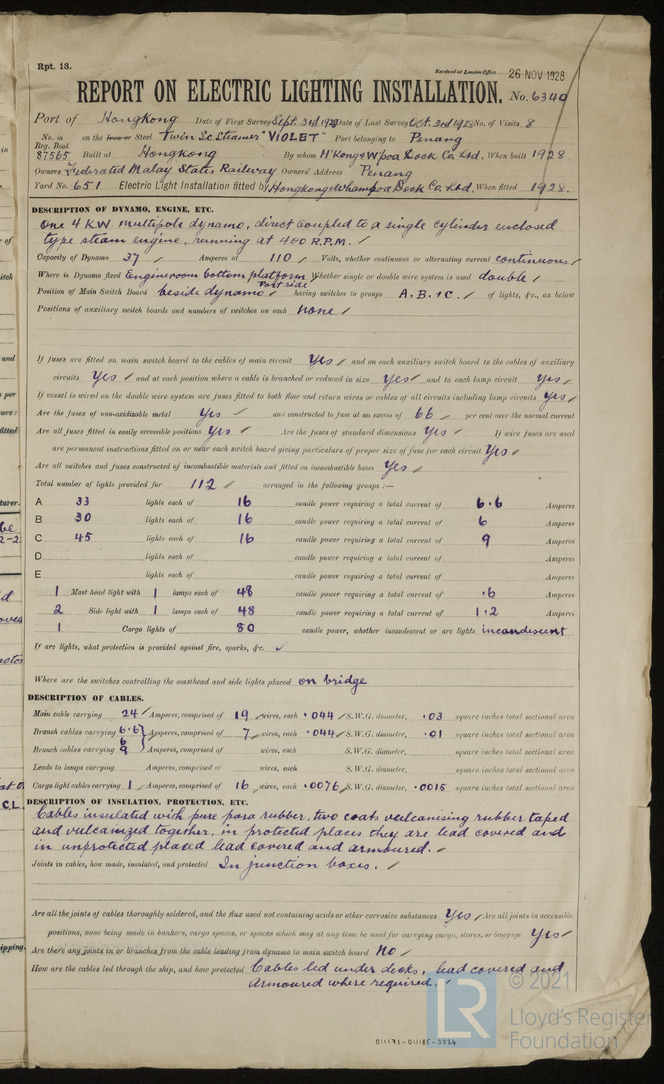 Rpt. 13.
Received at London Office 26 NOV 1928
REPORT ON ELECTRIC LIGHTING INSTALLATION. No. 6340
Port of Hongkong Date of First Survey Sept. 3rd 1928 Date of Last Survey Oct. 3rd 1928 No. of Visits 8
No. in Reg. Book 87565 on the Iron or Steel Twin Sc. Steamer "VIOLET" Port belonging to Penang
Built at Hongkong By whom H'Kong & W'poa Dock Co. Ltd. When built 1928.
Owners Federated Malay States Railway Owners' Address Penang
Yard No. 651 Electric Light Installation fitted by Hongkong & Whampoa Dock Co. Ltd. When fitted 1928.
DESCRIPTION OF DYNAMO, ENGINE, ETC.
One 4 K.W. multipole dynamo, direct coupled to a single cylinder enclosed
type steam engine, running at 400 R.P.M.
Capacity of Dynamo 37 Amperes at 110 Volts, whether continuous or alternating current continuous
Where is Dynamo fixed Engineroom bottom platform Port side Whether single or double wire system is used double
Position of Main Switch Board beside dynamo having switches to groups A. B. + C. of lights, &c., as below
Positions of auxiliary switch boards and numbers of switches on each none
If fuses are fitted on main switch board to the cables of main circuit Yes and on each auxiliary switch board to the cables of auxiliary
circuits Yes and at each position where a cable is branched or reduced in size yes and to each lamp circuit Yes
If vessel is wired on the double wire system are fuses fitted to both flow and return wires or cables of all circuits including lamp circuits Yes
Are the fuses of non-oxidizable metal Yes and constructed to fuse at an excess of 66 per cent over the normal current
Are all fuses fitted in easily accessible positions Yes Are the fuses of standard dimensions Yes If wire fuses are used
are permanent instructions fitted on or near each switch board giving particulars of proper size of fuse for each circuit Yes
Are all switches and fuses constructed of incombustible materials and fitted on incombustible bases Yes
Total number of lights provided for 112 arranged in the following groups :—
A 33 lights each of 16 candle power requiring a total current of 6.6 Amperes
B 30 lights each of 16 candle power requiring a total current of 6 Amperes
C 45 lights each of 16 candle power requiring a total current of 9 Amperes
D lights each of candle power requiring a total current of Amperes
E lights each of candle power requiring a total current of Amperes
1 Mast head light with 1 lamps each of 48 candle power requiring a total current of .6 Amperes
2 Side light with 1 lamps each of 48 candle power requiring a total current of 1.2 Amperes
1 Cargo lights of 80 candle power, whether incandescent or arc lights incandescent
If arc lights, what protection is provided against fire, sparks, &c.
Where are the switches controlling the masthead and side lights placed on bridge
DESCRIPTION OF CABLES.
Main cable carrying 24 Amperes, comprised of 19 wires, each .044 S.W.G. diameter, .03 square inches total sectional area
Branch cables carrying 6.6 Amperes, comprised of 7 wires, each .044 S.W.G. diameter, .01 square inches total sectional area
6
Branch cables carrying 9 Amperes, comprised of wires, each S.W.G. diameter, square inches total sectional area
Leads to lamps carrying Amperes, comprised of wires, each S.W.G. diameter, square inches total sectional area
Cargo light cables carrying 1 Amperes, comprised of 16 wires, each .0076 S.W.G. diameter, .0015 square inches total sectional area
DESCRIPTION OF INSULATION, PROTECTION, ETC.
Cables insulated with pure para rubber, two coats vulcanising rubber taped
and vulcanized together, in protected places they are lead covered and
in unprotected placed lead covered and armoured.
Joints in cables, how made, insulated, and protected In junction boxes.
Are all the joints of cables thoroughly soldered, and the flux used not containing acids or other corrosive substances Yes Are all joints in accessible
positions, none being made in bunkers, cargo spaces, or spaces which may at any time be used for carrying cargo, stores, or baggage Yes
Are there any joints in or branches from the cable leading from dynamo to main switch board No
How are the cables led through the ship, and how protected Cables led under decks, lead covered and
armoured where required.
© 2021
LR Lloyd's Register
Foundation
011171-011185-0024